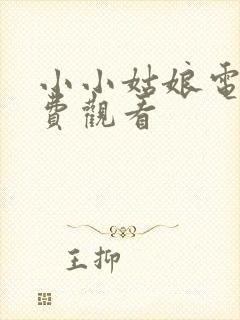 小小姑娘電
費觀看
王抑